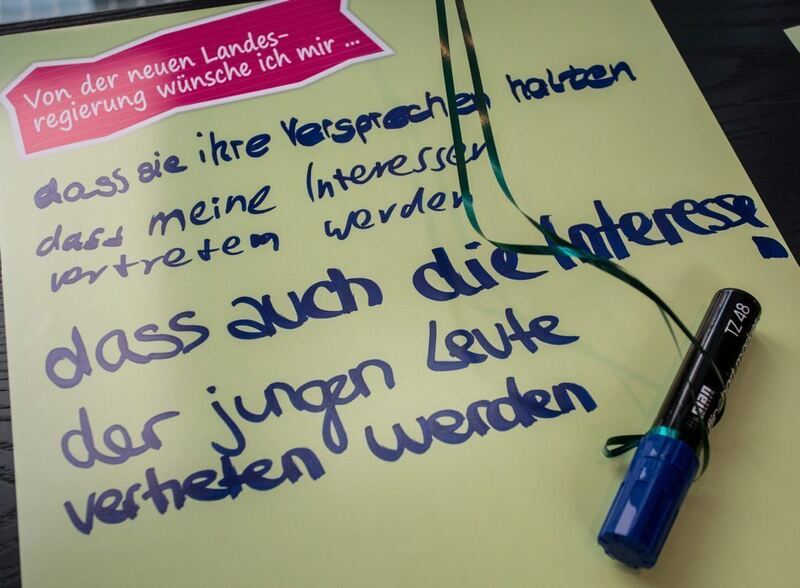 Von der neuen Landes-
regierung wünsche ich mir ...
dass sie ihre Versprechen halten
dass meine Interessen
vertretem werden
dass auch die Interesse
der jungen Leute
vertreten werden
TZ 48